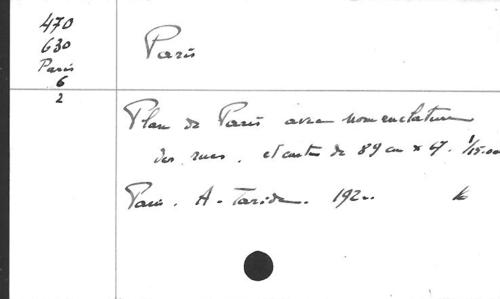 470
630
Paris
6
2
Paris
Plan de Paris avec nomenclature
des rues. et cartes de 89 cm x 67. 1/15.000
Paris. A. Taride. 192..